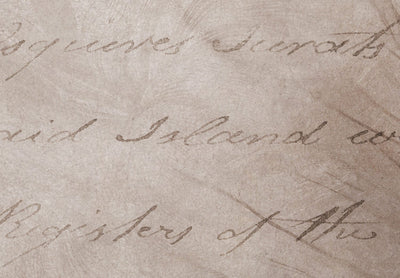 Esqueres Surats
aid Island w
Registers of the